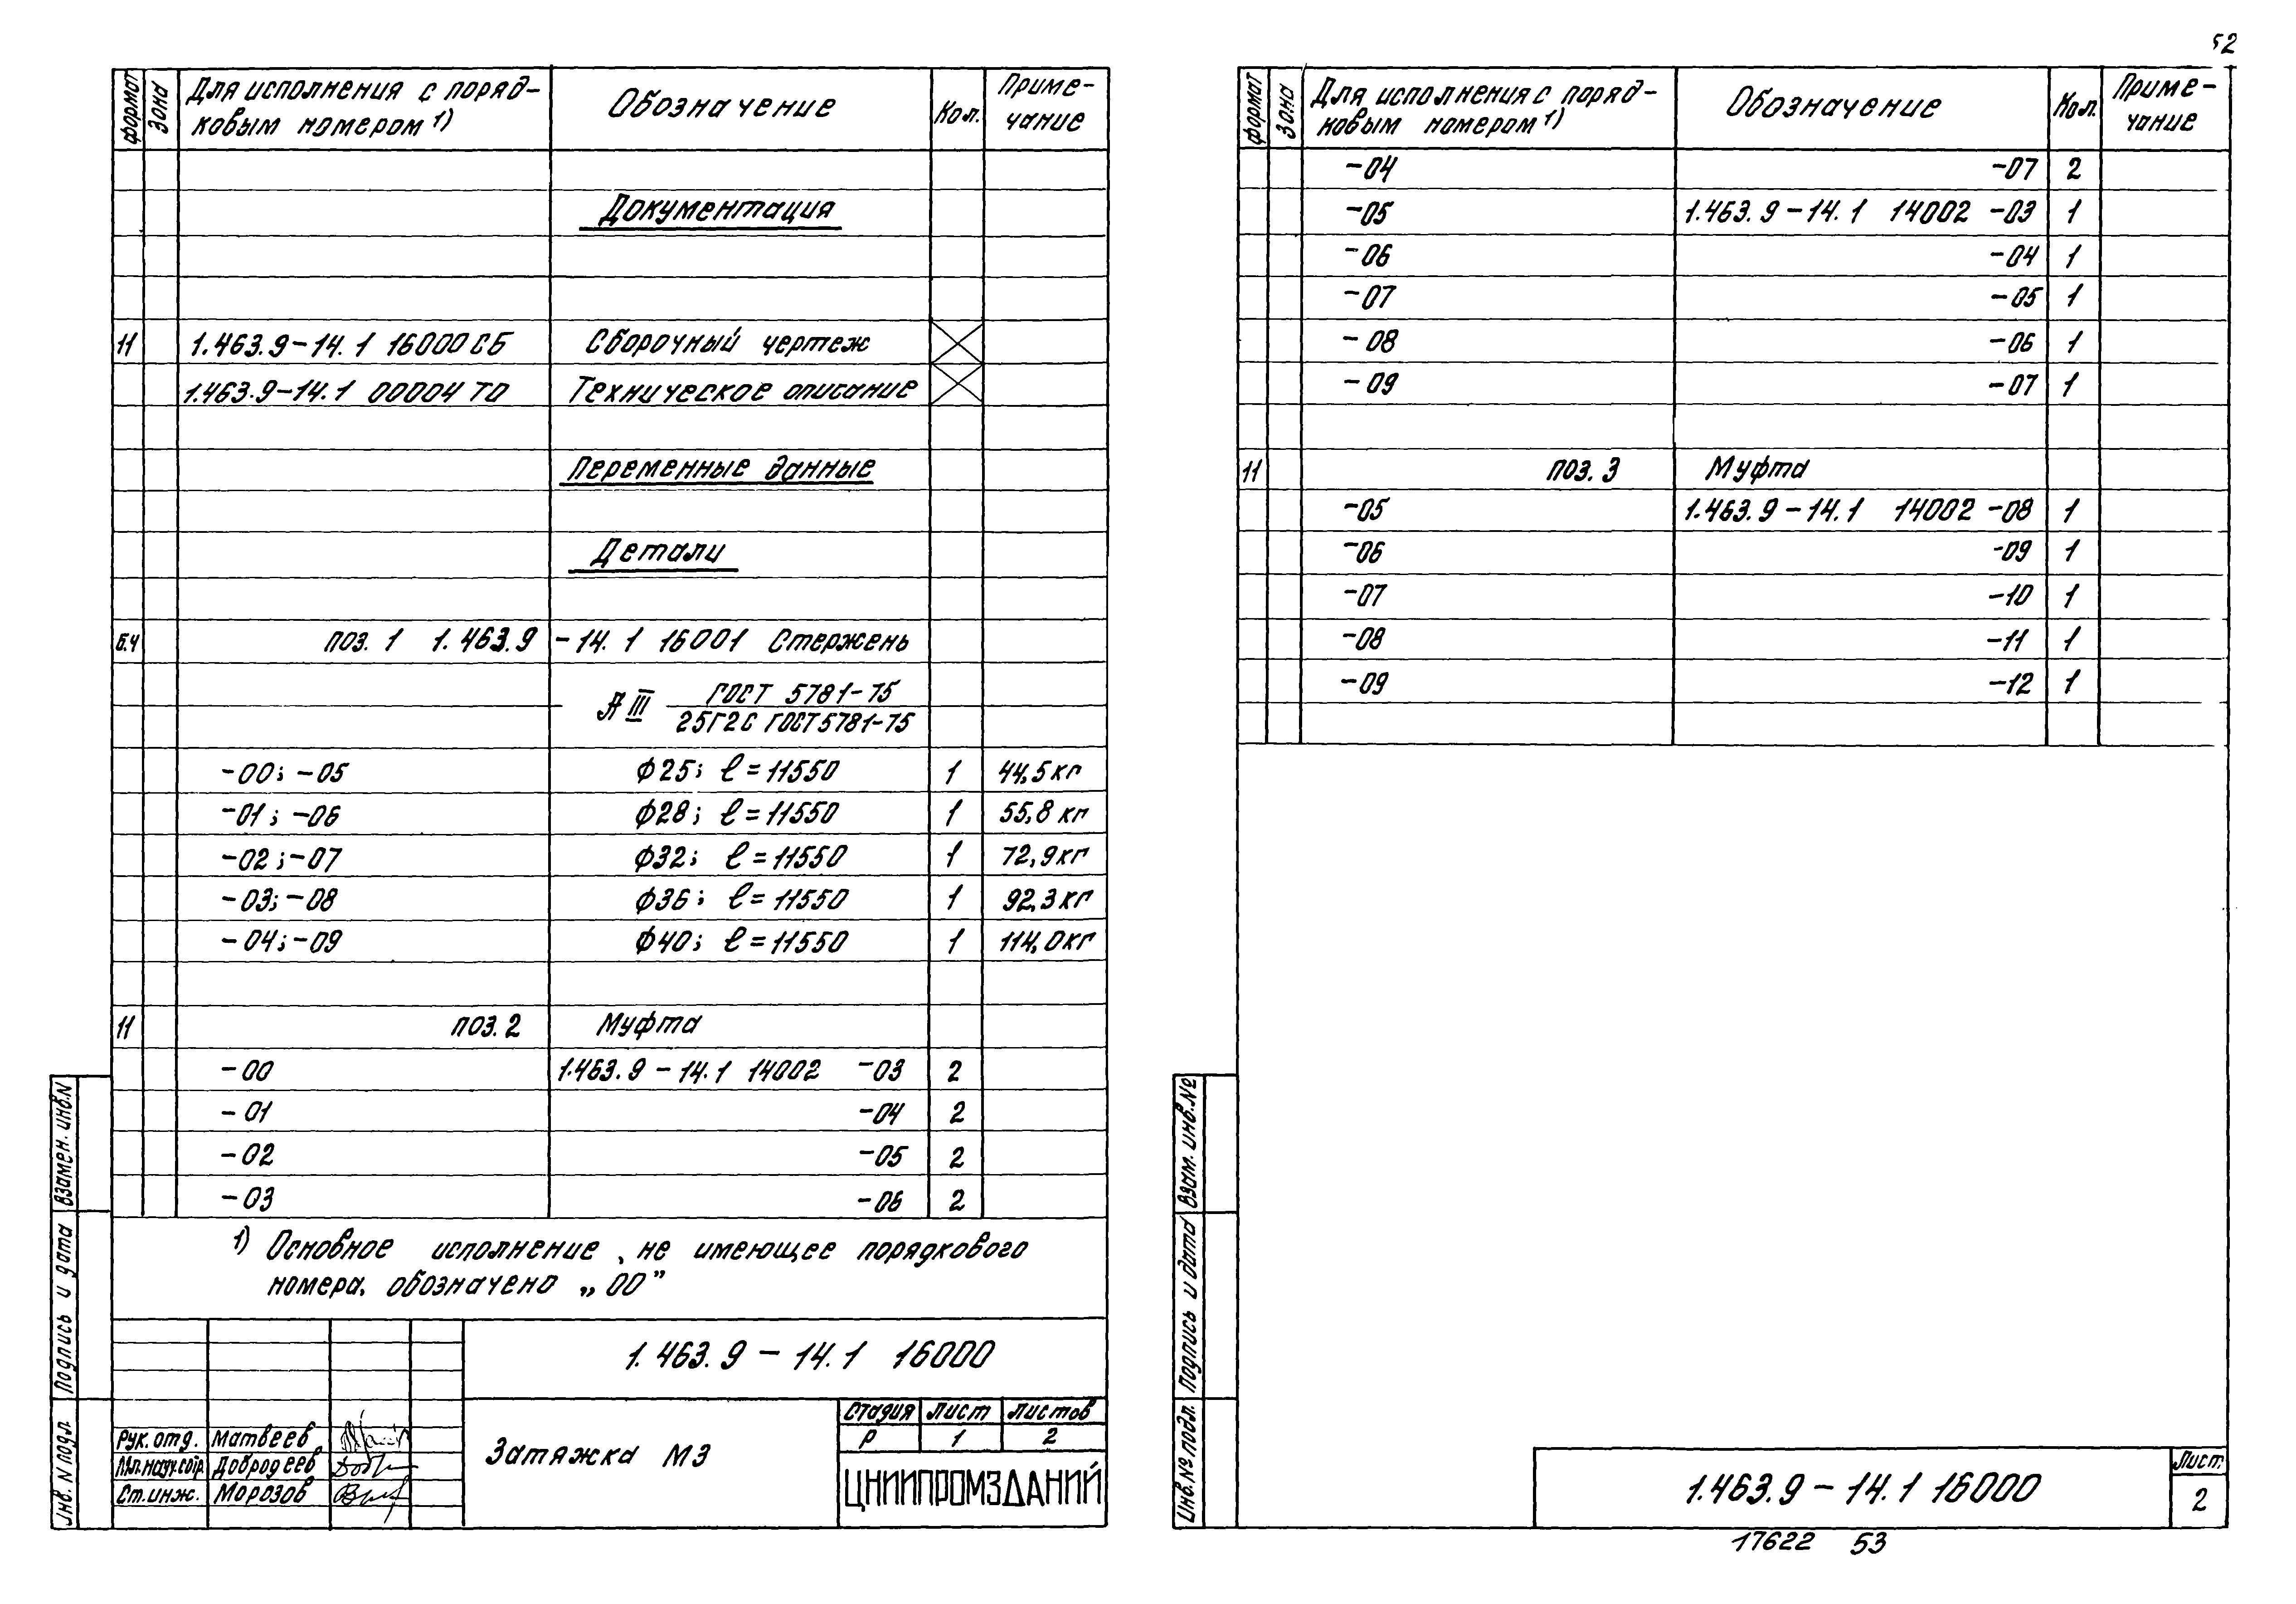 52
формат Зона Для исполнения с поряд- Обозначение Кол. Приме-
ковым номером 1) чание
Документация
11 1.463.9-14.1 16000 СБ Сборочный чертеж
1.463.9-14.1 00004 ТО Техническое описание
Переменные данные
Детали
Б.Ч поз. 1 1.463.9-14.1 16001 Стержень
АIII ГОСТ 5781-75
25Г2С ГОСТ 5781-75
-00; -05 ϕ25; ℓ=11550 1 44,5кг
-01; -06 ϕ28; ℓ=11550 1 55,8 кг
-02; -07 ϕ32; ℓ=11550 1 72,9кг
-03; -08 ϕ36; ℓ=11550 1 92,3кг
-04; -09 ϕ40; ℓ=11550 1 114,0кг
11 поз. 2 Муфта
-00 1.463.9-14.1 14002 -03 2
-01 -04 2
-02 -05 2
-03 -06 2
1) Основное исполнение, не имеющее порядкового
номера, обозначено „00”
1.463.9-14.1 16000
Затяжка М3
Стадия Лист Листов
Р 1 2
ЦНИИПРОМЗДАНИЙ
Рук. отд. Матвеев
Добродеев
Ст. инж. Морозов
Инв. N подл. Подпись и дата Взамен. инв. N
формат Зона Для исполнения с поряд- Обозначение Кол. Приме-
ковым номером 1) чание
-04 -07 2
-05 1.463.9-14.1 14002 -03 1
-06 -04 1
-07 -05 1
-08 -06 1
-09 -07 1
11 поз. 3 Муфта
-05 1.463.9-14.1 14002 -08 1
-06 -09 1
-07 -10 1
-08 -11 1
-09 -12 1
Инв. № подл. Подпись и дата Взам. инв. №
1.463.9-14.1 16000
Лист
2
17622 53